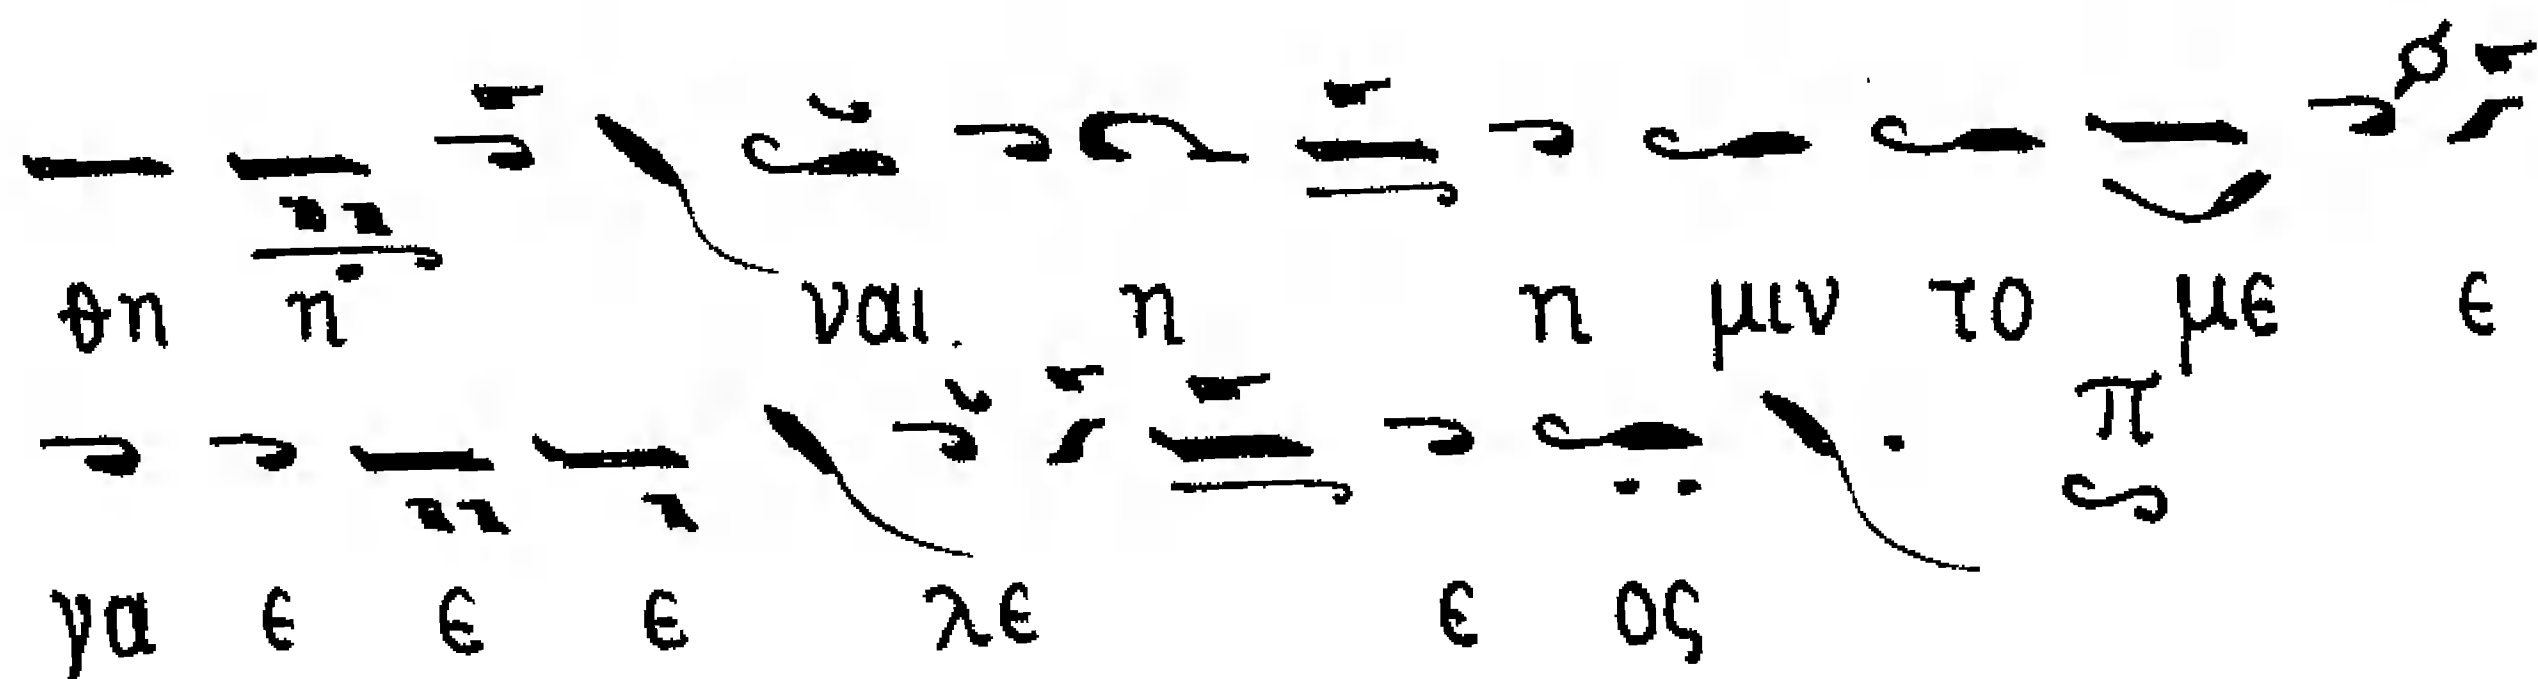 θη η ναι. η η μιν το με ε
π
γα ε ε ε λε ε ος